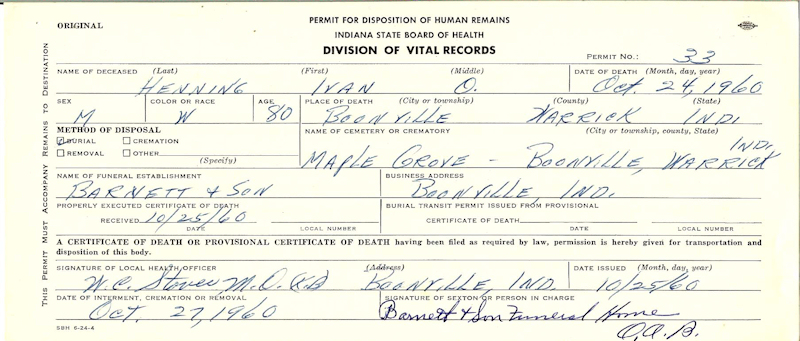 ORIGINAL
PERMIT FOR DISPOSITION OF HUMAN REMAINS
INDIANA STATE BOARD OF HEALTH
DIVISION OF VITAL RECORDS
PERMIT NO.: 33
NAME OF DECEASED (Last) (First) (Middle) DATE OF DEATH (Month, day, year)
HENNING IVAN O. Oct. 24, 1960
SEX COLOR OR RACE AGE PLACE OF DEATH (City or township) (County) (State)
M W 80 BOONVILLE WARRICK IND.
METHOD OF DISPOSAL NAME OF CEMETERY OR CREMATORY (City or township, county, State)
BURIAL CREMATION
REMOVAL OTHER
(Specify)
MAPLE GROVE - BOONVILLE, WARRICK IND.
NAME OF FUNERAL ESTABLISHMENT BUSINESS ADDRESS
BARNETT + SON BOONVILLE, IND.
PROPERLY EXECUTED CERTIFICATE OF DEATH BURIAL TRANSIT PERMIT ISSUED FROM PROVISIONAL
RECEIVED 10/25/60 CERTIFICATE OF DEATH
DATE LOCAL NUMBER DATE LOCAL NUMBER
A CERTIFICATE OF DEATH OR PROVISIONAL CERTIFICATE OF DEATH having been filed as required by law, permission is hereby given for transportation and
disposition of this body.
SIGNATURE OF LOCAL HEALTH OFFICER (Address) DATE ISSUED (Month, day, year)
W. C. Stover M.D. BOONVILLE, IND. 10/25/60
DATE OF INTERMENT, CREMATION OR REMOVAL SIGNATURE OF SEXTON OR PERSON IN CHARGE
Oct. 27, 1960 Barnett + Son Funeral Home
O.A.B.
SBH 6-24-4
THIS PERMIT MUST ACCOMPANY REMAINS TO DESTINATION